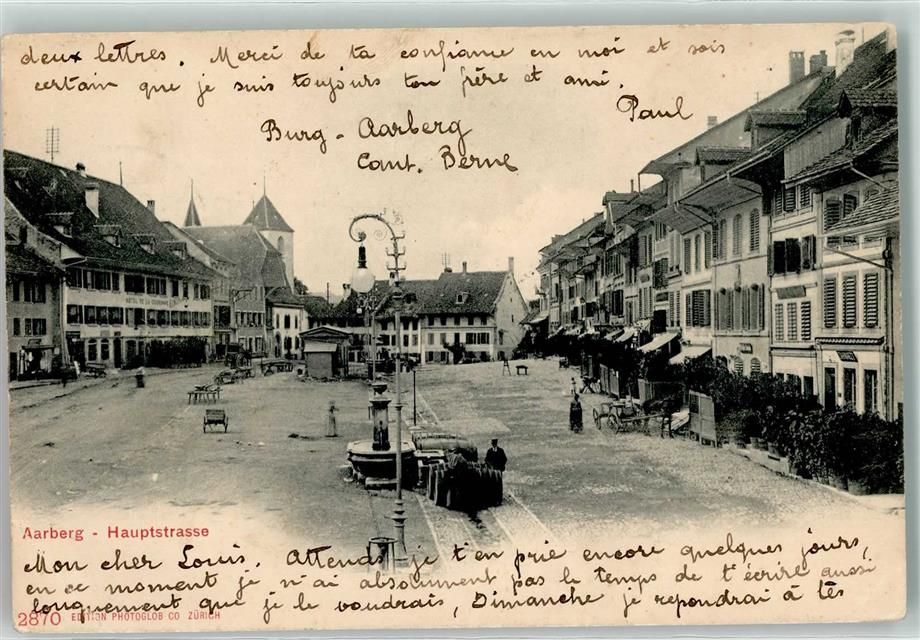 deux lettres. Merci de ta confiance en moi et sois
certain que je suis toujours ton frère et ami.
Paul
Burg-Aarberg
Cant. Berne
HÔTEL DE LA COURONNE
Aarberg - Hauptstrasse
Mon cher Louis. Attends, je t'en prie encore quelques jours,
en ce moment je n'ai absolument pas le temps de t'écrire aussi
longuement que je le voudrais, Dimanche je repondrai à tes
2870 EDITION PHOTOGLOB CO ZÜRICH